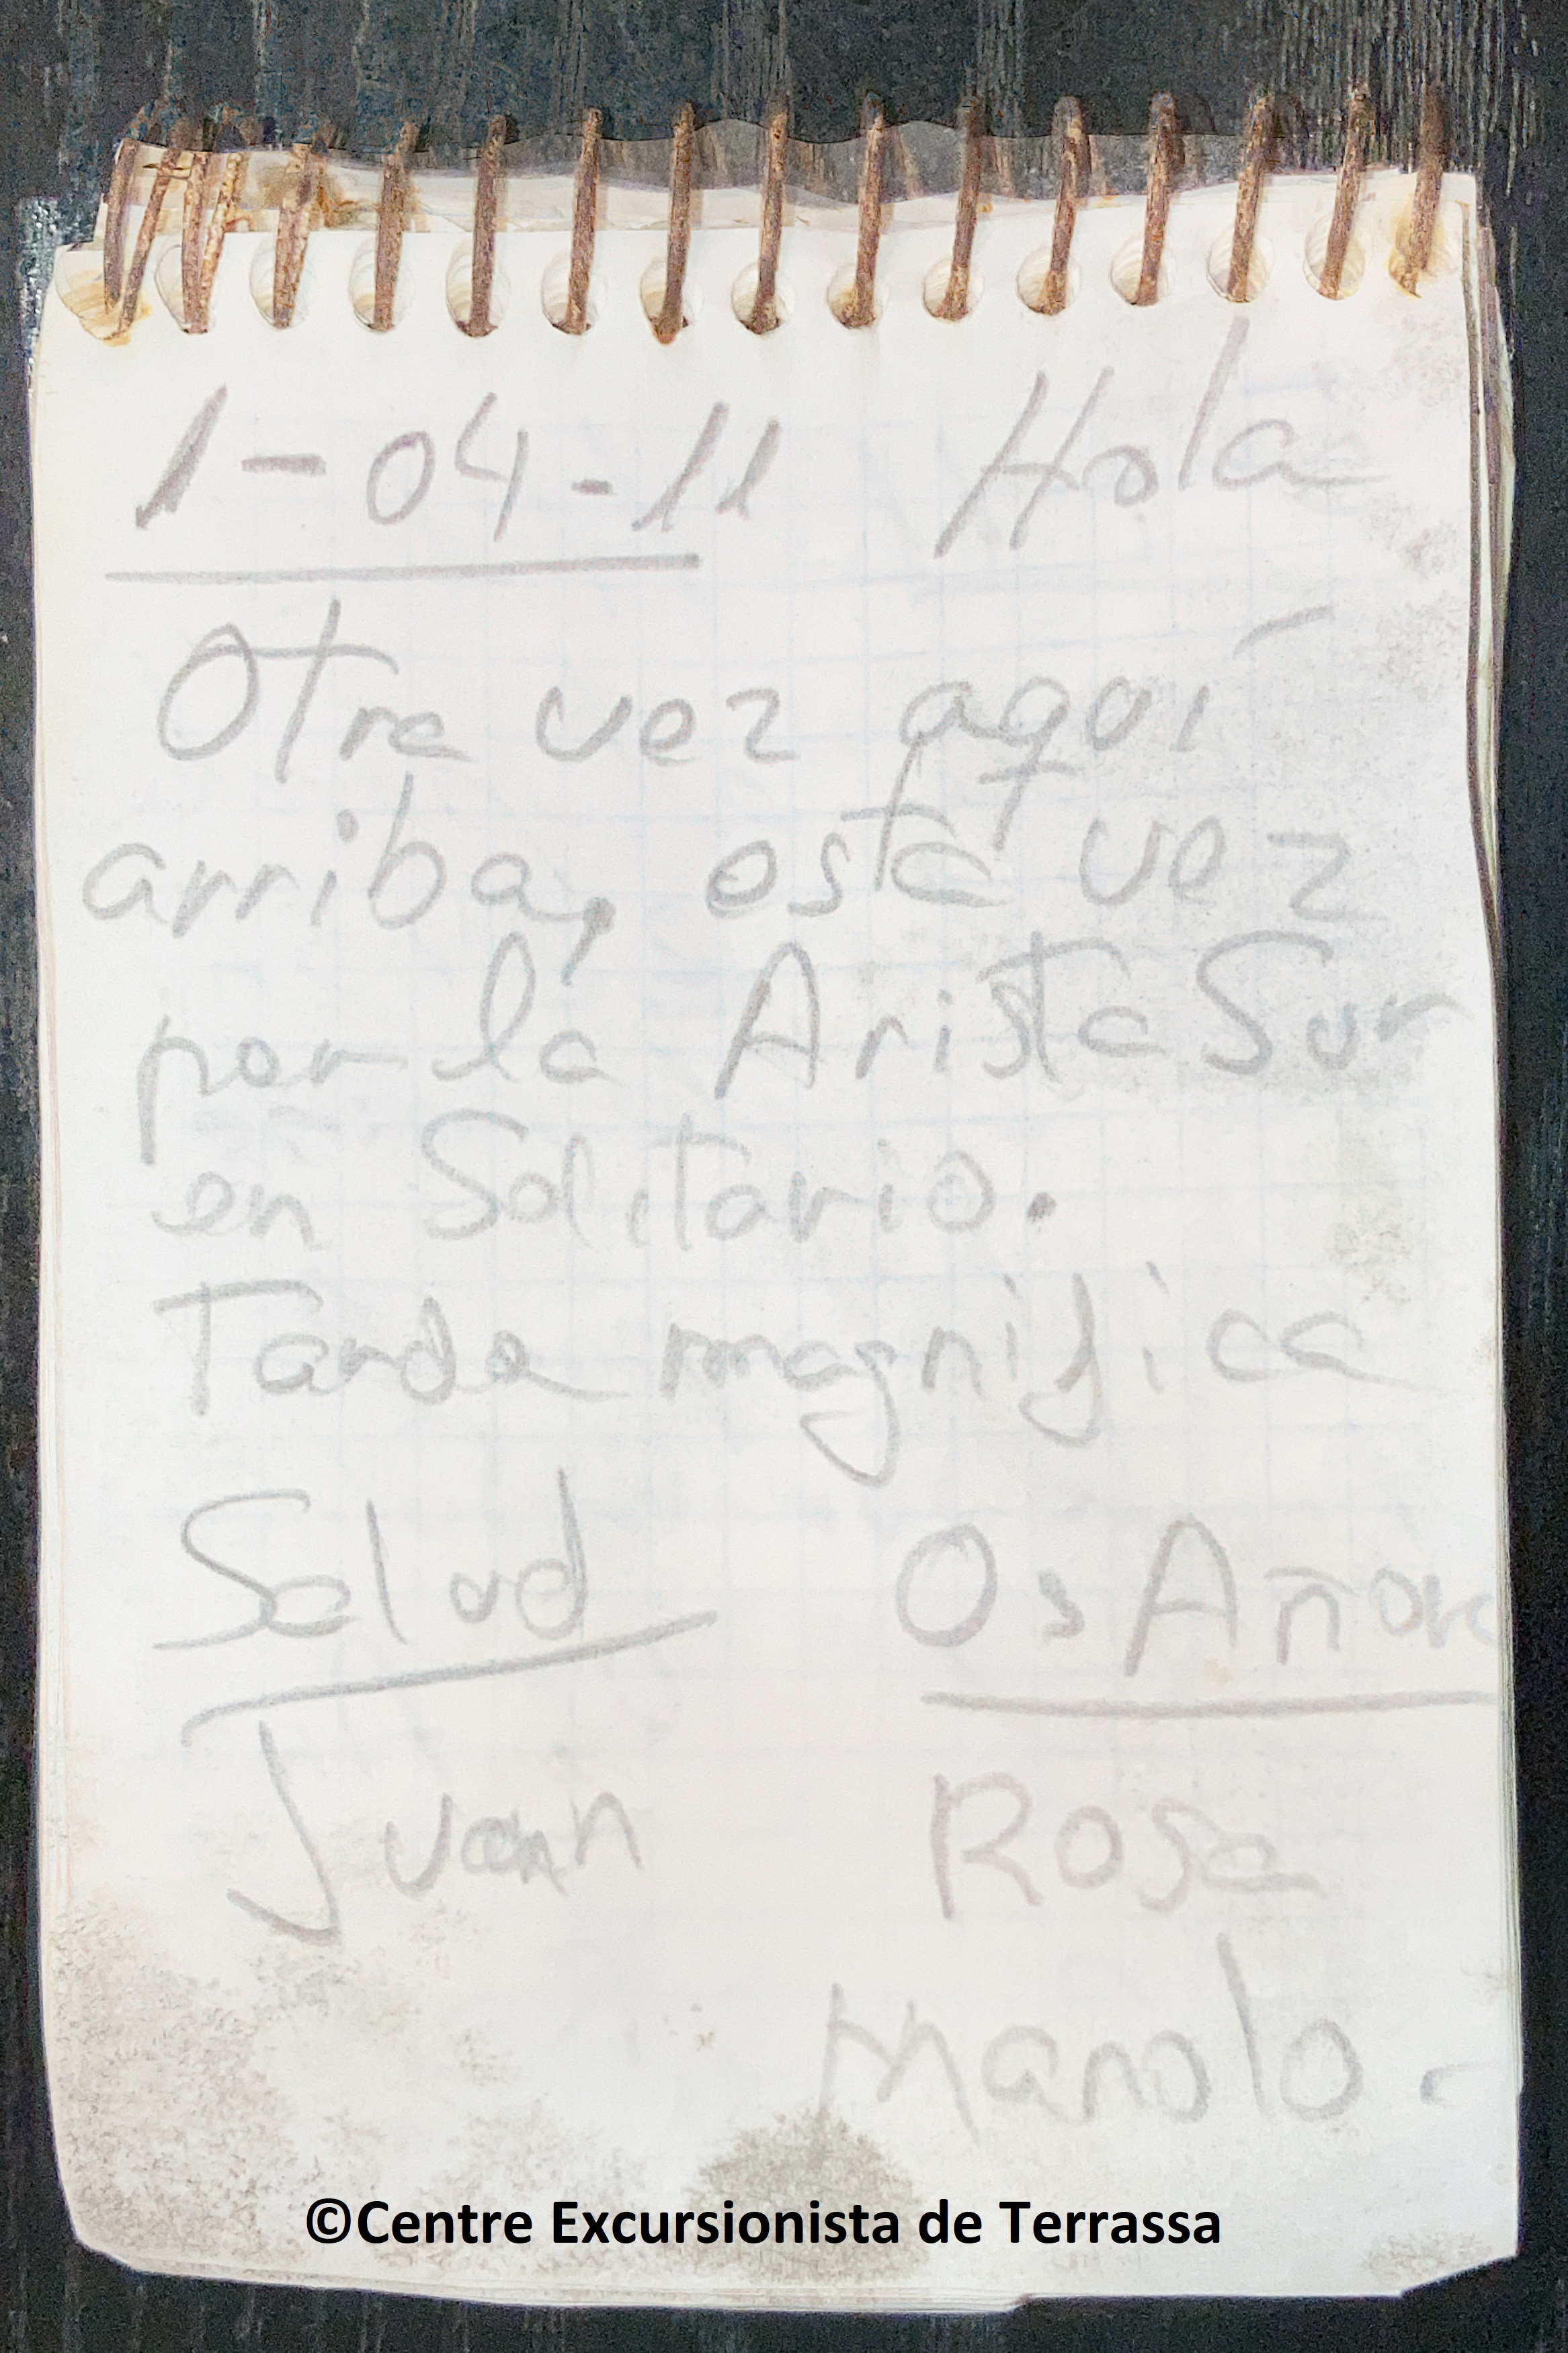 1-04-11 Hola
Otra vez aquí
arriba, esta vez
por la Arista Sur
en Solitario.
Tarde magnifica
Salud Os Añor
Juan Rosa
Manolo.-
©Centre Excursionista de Terrassa